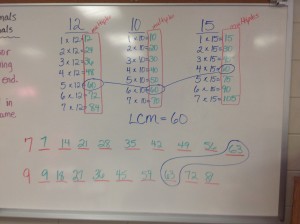 nals
or
ning
end.
in
ame.
12
multiples
1 x 12 = 12
2 x 12 = 24
3 x 12 = 36
4 x 12 = 48
5 x 12 = 60
6 x 12 = 72
7 x 12 = 84
10
multiples
1 x 10 = 10
2 x 10 = 20
3 x 10 = 30
4 x 10 = 40
5 x 10 = 50
6 x 10 = 60
7 x 10 = 70
15
multiples
1 x 15 = 15
2 x 15 = 30
3 x 15 = 45
4 x 15 = 60
5 x 15 = 75
6 x 15 = 90
7 x 15 = 105
LCM = 60
7 7 14 21 28 35 42 49 56 63
9 9 18 27 36 45 54 63 72 81